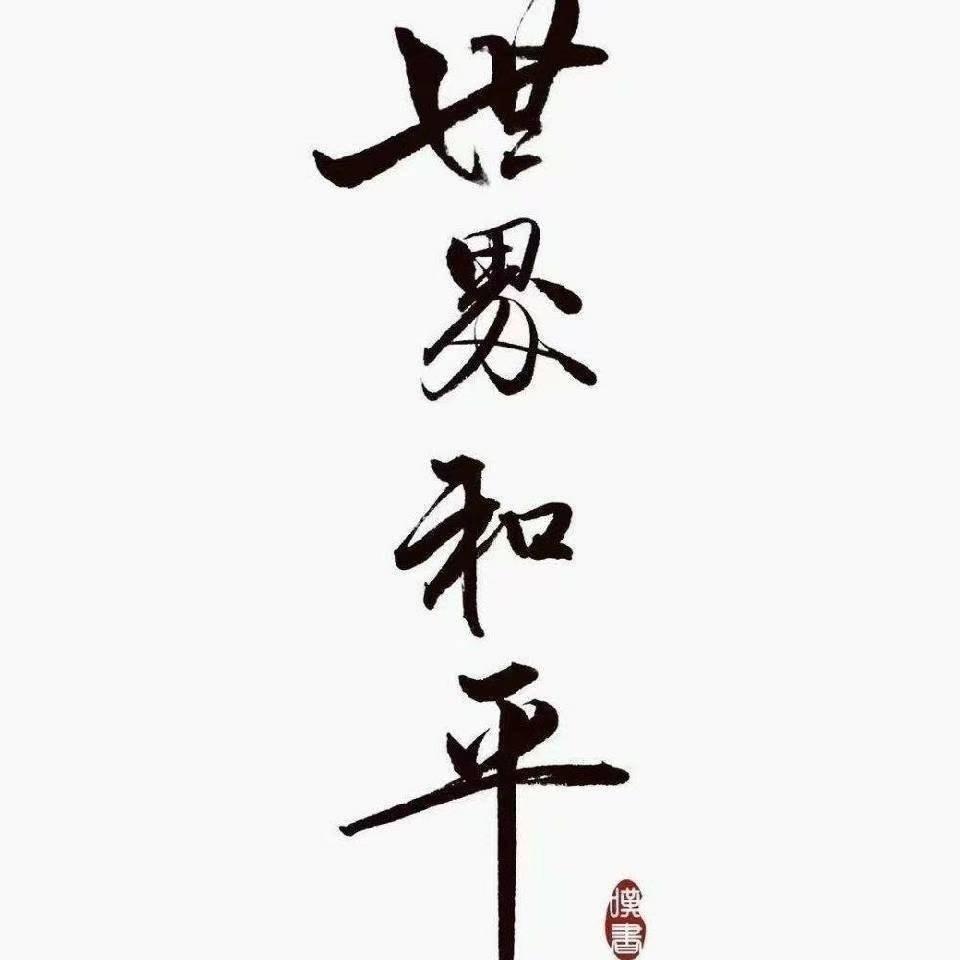 世界和平
書